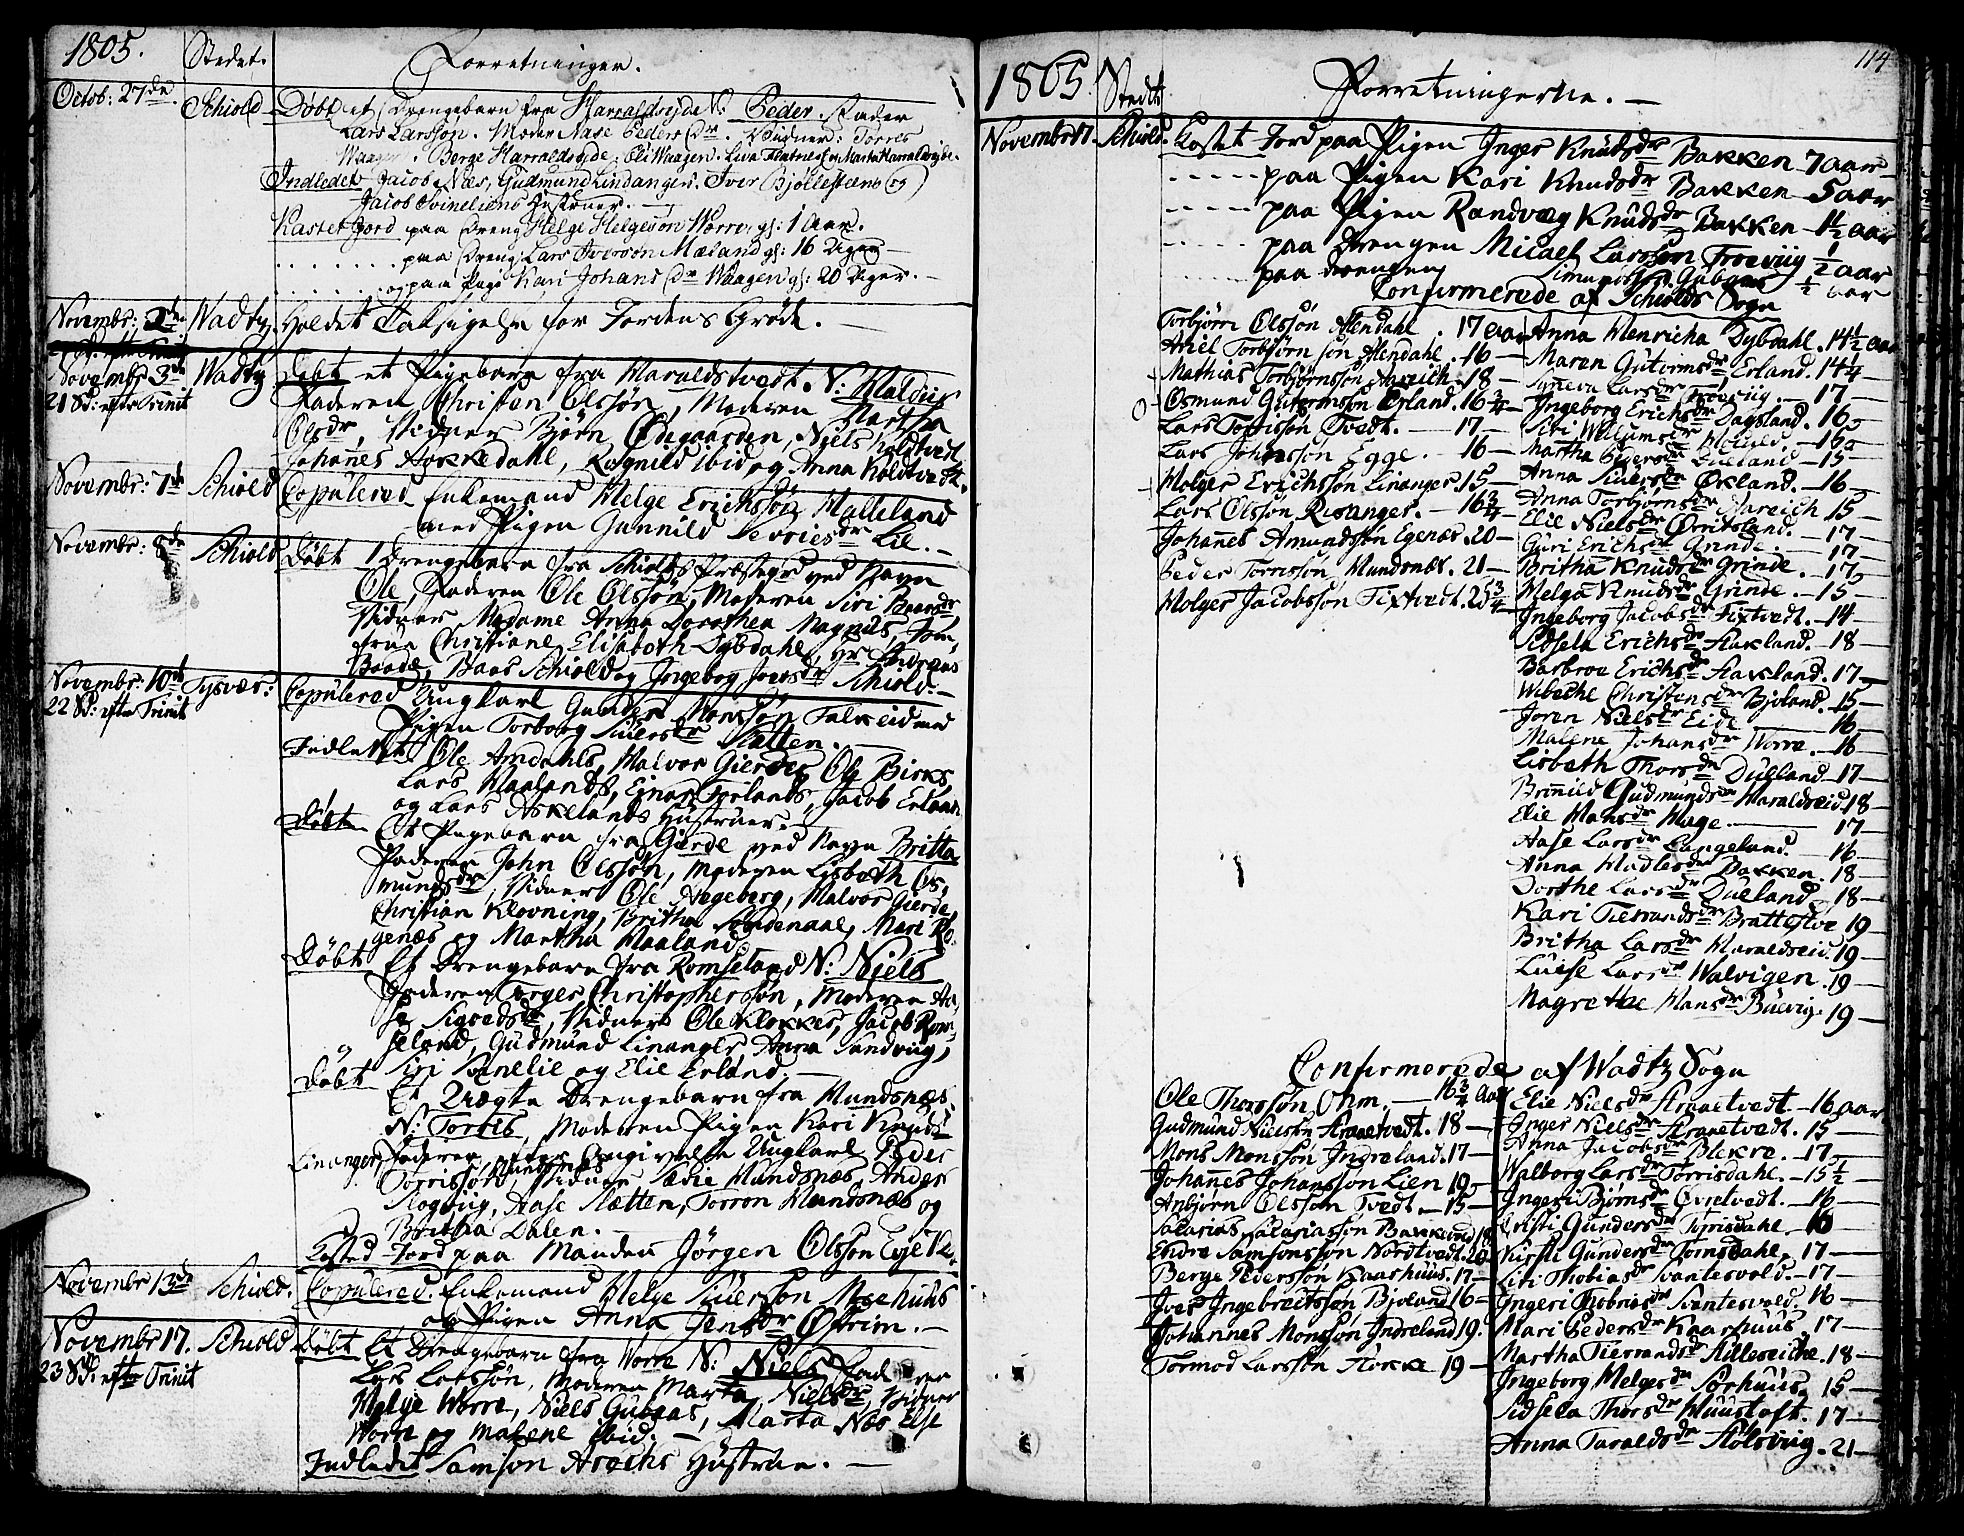 1805. Stedet. Forretninger.
Octob: 27de. Schiold Døbt et Drengebarn fra Harraldseyde N: Peder. Fader
Lars Larsson. Moder Aase Peders Dr. Vidner: Torres
Waagen. Berge Harraldseyde, Oli Waagen. Liva Marta Harraldseyde.
Indledet Jacob Næs, Gudmund Lindanger. Iver Bjøllesteens og
Jacob Svineliens Hustruer.
Kastet Jord paa Dreng Helge Helgeson Worre, gl: 1 Aar.
paa Dreng Lars Iverson Mæland gl: 16 Uger
og paa Pige Kari Johans Dr Waagen gl: 20 Uger.
Novembr: 2de Wadtz. Holdet Taksigelse for Jordens Grøde.
Novembr 3de Wadtz Døbt et Pigebarn fra Haraldstvedt. N: Maldiis
21 Sd: efter Trinit Faderen Christen Olssøn, Moderen Martha
Olsdr, Vidner Biørn Ødegaarden, Niels Holdtvedt
Johannes Aakkedahl, Ragnild ibid og Anna Holdtvedt.
Novembr: 7de Schiold Copulered Enkemand Helge Erichssøn Malleland
med Pigen Gunnild Sevriesdr Lie.
Novembr: 8de Schiold Døbt 1 Drengebarn fra Schiolds Præstegrd ved Navn
Ole, Faderen Ole Olssøn, Moderen Siri Baarsdr
Vidner Madame Anna Dorothea Magnus, Jom-
frue Christiane Elisabeth Dybdahl, Hr Andreas
Baade, Baar Schiold og Ingebog Joensdr Schiold.
Novembr: 10de Tysvær: Copulered Ungkarl Gunder Monssøn Falkeid med
22 Sd: efter Trinit Pigen Torborg Siversdr Slatten.
Indledet Ole Amdahls, Halvor Gierdes, Ole Birks,
Lars Haalands, Einar Førlands, Jacob Erlands
og Lars Askelands Hustruer.
Døbt Et Pigebarn fra Gierde ved Navn Britta
Faderen John Olssøn, Moderen Lisbeth Os-
mundsdr, Vidner Ole Aageberg, Halvor Gierde,
Christian Klovning, Britha Søndenaae, Mari Bo-
genæs og Martha Haaland.
Døbt Et Drengebarn fra Romseland N: Niels
Faderen Torger Christopherssøn, Moderen Aa-
se Sigvedsdr, Vidner Ole Klokker, Jacob Rom-
seland, Gudmund Linanger, Anna Sandviig,
Siri Svinelie og Elie Erland.
Døbt Et Uægte Drengebarn fra Mundsnæs
N: Torris, Moderen Pigen Kari Knuds-
Linanger, Faderen efter Angivelse Ungkarl Peder
Torrissøn Mundsnæs, Vidner Sædie Mundsnæs, Ander
Skogviig, Aase Slætten, Torron Mundsnæs og
Britha Dalen.
Kasted Jord paa Manden Jörgen Olsson Eyje
Novembr 13de Schiold. Copulered. Enkemand Helge Siverson Moehuus
og Pigen Anna Jensdr Østrim.
Novembr 17. Schiold Døbt Et Drengebarn fra Worre N: Niels Faderen
23 Sd: efter Trinit Lars Larssøn, Moderen Marta Nielsdr, Vidner
Helge Worre, Niels Gubaas, Marta Næs, Else
Worre og Malene ibid.
Indledet Samson Aroehs Hustrue.
114
1805 Stedet Forretningerne.
Novembr 17. Schiold. Kastet Jord paa Pigen Inger Knudsdr Bakken 7 aar
paa Pigen Kari Knudsdr Bakken 5 aar
paa Pigen Randvæg Knudsdr Bakken 1½ aar
paa Drengen Micael Larsson Froeviig ½ aar
paa Drengen Simun Gubaas ½ aar
Confirmerede af Schiolds Sogn
Torbjörn Olssön Alendahl. 17 aar
Ariel Torbjörnsön Alendahl. 16
Mathias Torbjörnssön Aareich 18
Osmund Gutormssön Örland. 16¾
Lars Torrissön Tvedt. 17
Lars Johansson Egge. 16
Holger Erichssön Linanger. 15
Lars Olsson Risanger. 16¾
Johannes Amundsson Egenæs. 20
Peder Torrissön Mundsnæs. 21
Holger Jacobsson Tixtvedt. 25¾
Anna Henricha Dybdahl. 14½ aar
Maren Gutormsdr Erland. 14¼
Synneva Larsdr Froeviig. 17
Ingeborg Erichsdr Dagsland. 16
Siri Willumsdr 15
Martha Pedersdr Dueland 15
Anna Siversdr Örland. 16
Anna Torbjörnsdr Aareich 15
Elie Nielsdr Örritsland. 17
Guri Erichsdr Grinde. 17
Britha Knudsdr Grinde. 17
Helga Knudsdr Grinde. 15
Ingeborg Jacobsdr Tixtvedt. 14
Sidsela Erichsdr Aakland. 18
Barbroe Erichsdr Aakland. 17
Wibeche Christensdr Bjoland. 15
Joren Nielsdr Eide 16
Malene Johansdr Worre. 16
Lisbeth Thorsdr Dueland. 17
Brönild Gudmundsdr Haraldseid. 18
Elie Hansdr Hage. 17
Aase Larsdr Langeland. 16
Anna Madlesdr Bakken. 18
Dorthe Larsdr Dueland. 18
Kari Tierandsdr Brattestve 19
Britha Larsdr Haraldseid. 19
Luise Larsdr Walvigen. 19
Magrethe Hansdr Buevig. 19
Confirmerede af Wadtz Sogn
Ole Thorssøn Ohm. 16¾ Aar
Gudmund Nielsøn Aroaetvedt. 18
Mons Monssøn Indreland. 17
Johannes Johansson Lien 19
Anbjørn Olssøn Tvedt. 15
Salarias Salariassön Bakkerud 18
Endre Samsonssøn Nordtvedt. 20
Berge Pederssøn Kaarhuus. 17
Iver Ingebreitssøn Bjoland. 16
Johannes Monssøn Indreland 19.
Tormod Larssøn Flokke 19
Elie Nielsdr Aroaetvedt. 16 aar
Inger Nielsdr Aroaetvedt. 15
Anna Jacobsdr Blekre. 17
Walborg Larsdr Torrisdahl. 15½
Ingeri Bjørnsdr Qvietvedt. 16
Kirsti Gundersdr Torrisdahl. 16
Kirsti Gundersdr Tornsdahl. 17
Siri Thobiasdr Svantesvold. 17
Ingeri Thobiasdr Svantesvold. 16
Mari Pedersdr Kaarhuus. 17
Martha Tierrandsdr Allereiche. 18
Ingeborg Helgesdr Sørhuus. 15
Sidsela Thorsdr Huustoft. 17
Anna Taraldsdr Stölsviig. 21